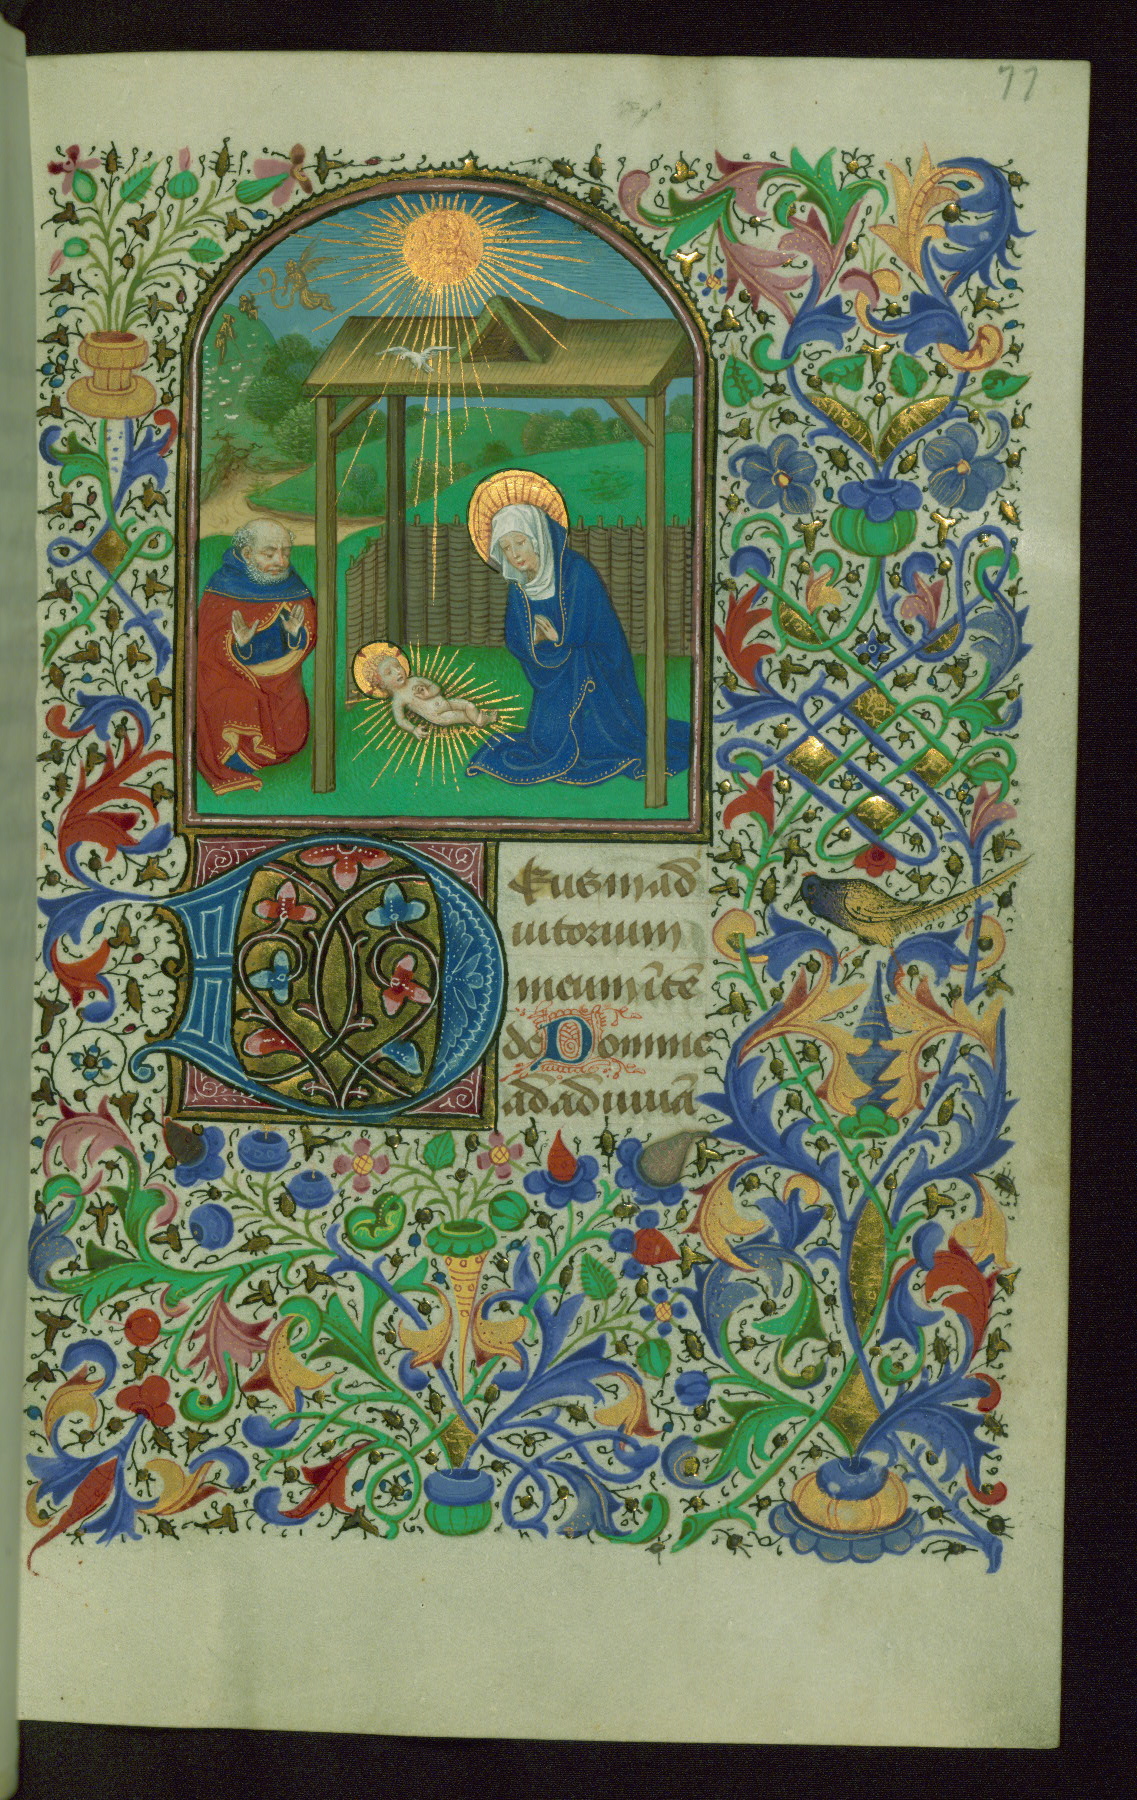 77
Deus in ad
iutorium
meum īte
de Domine
ad ad iuuā